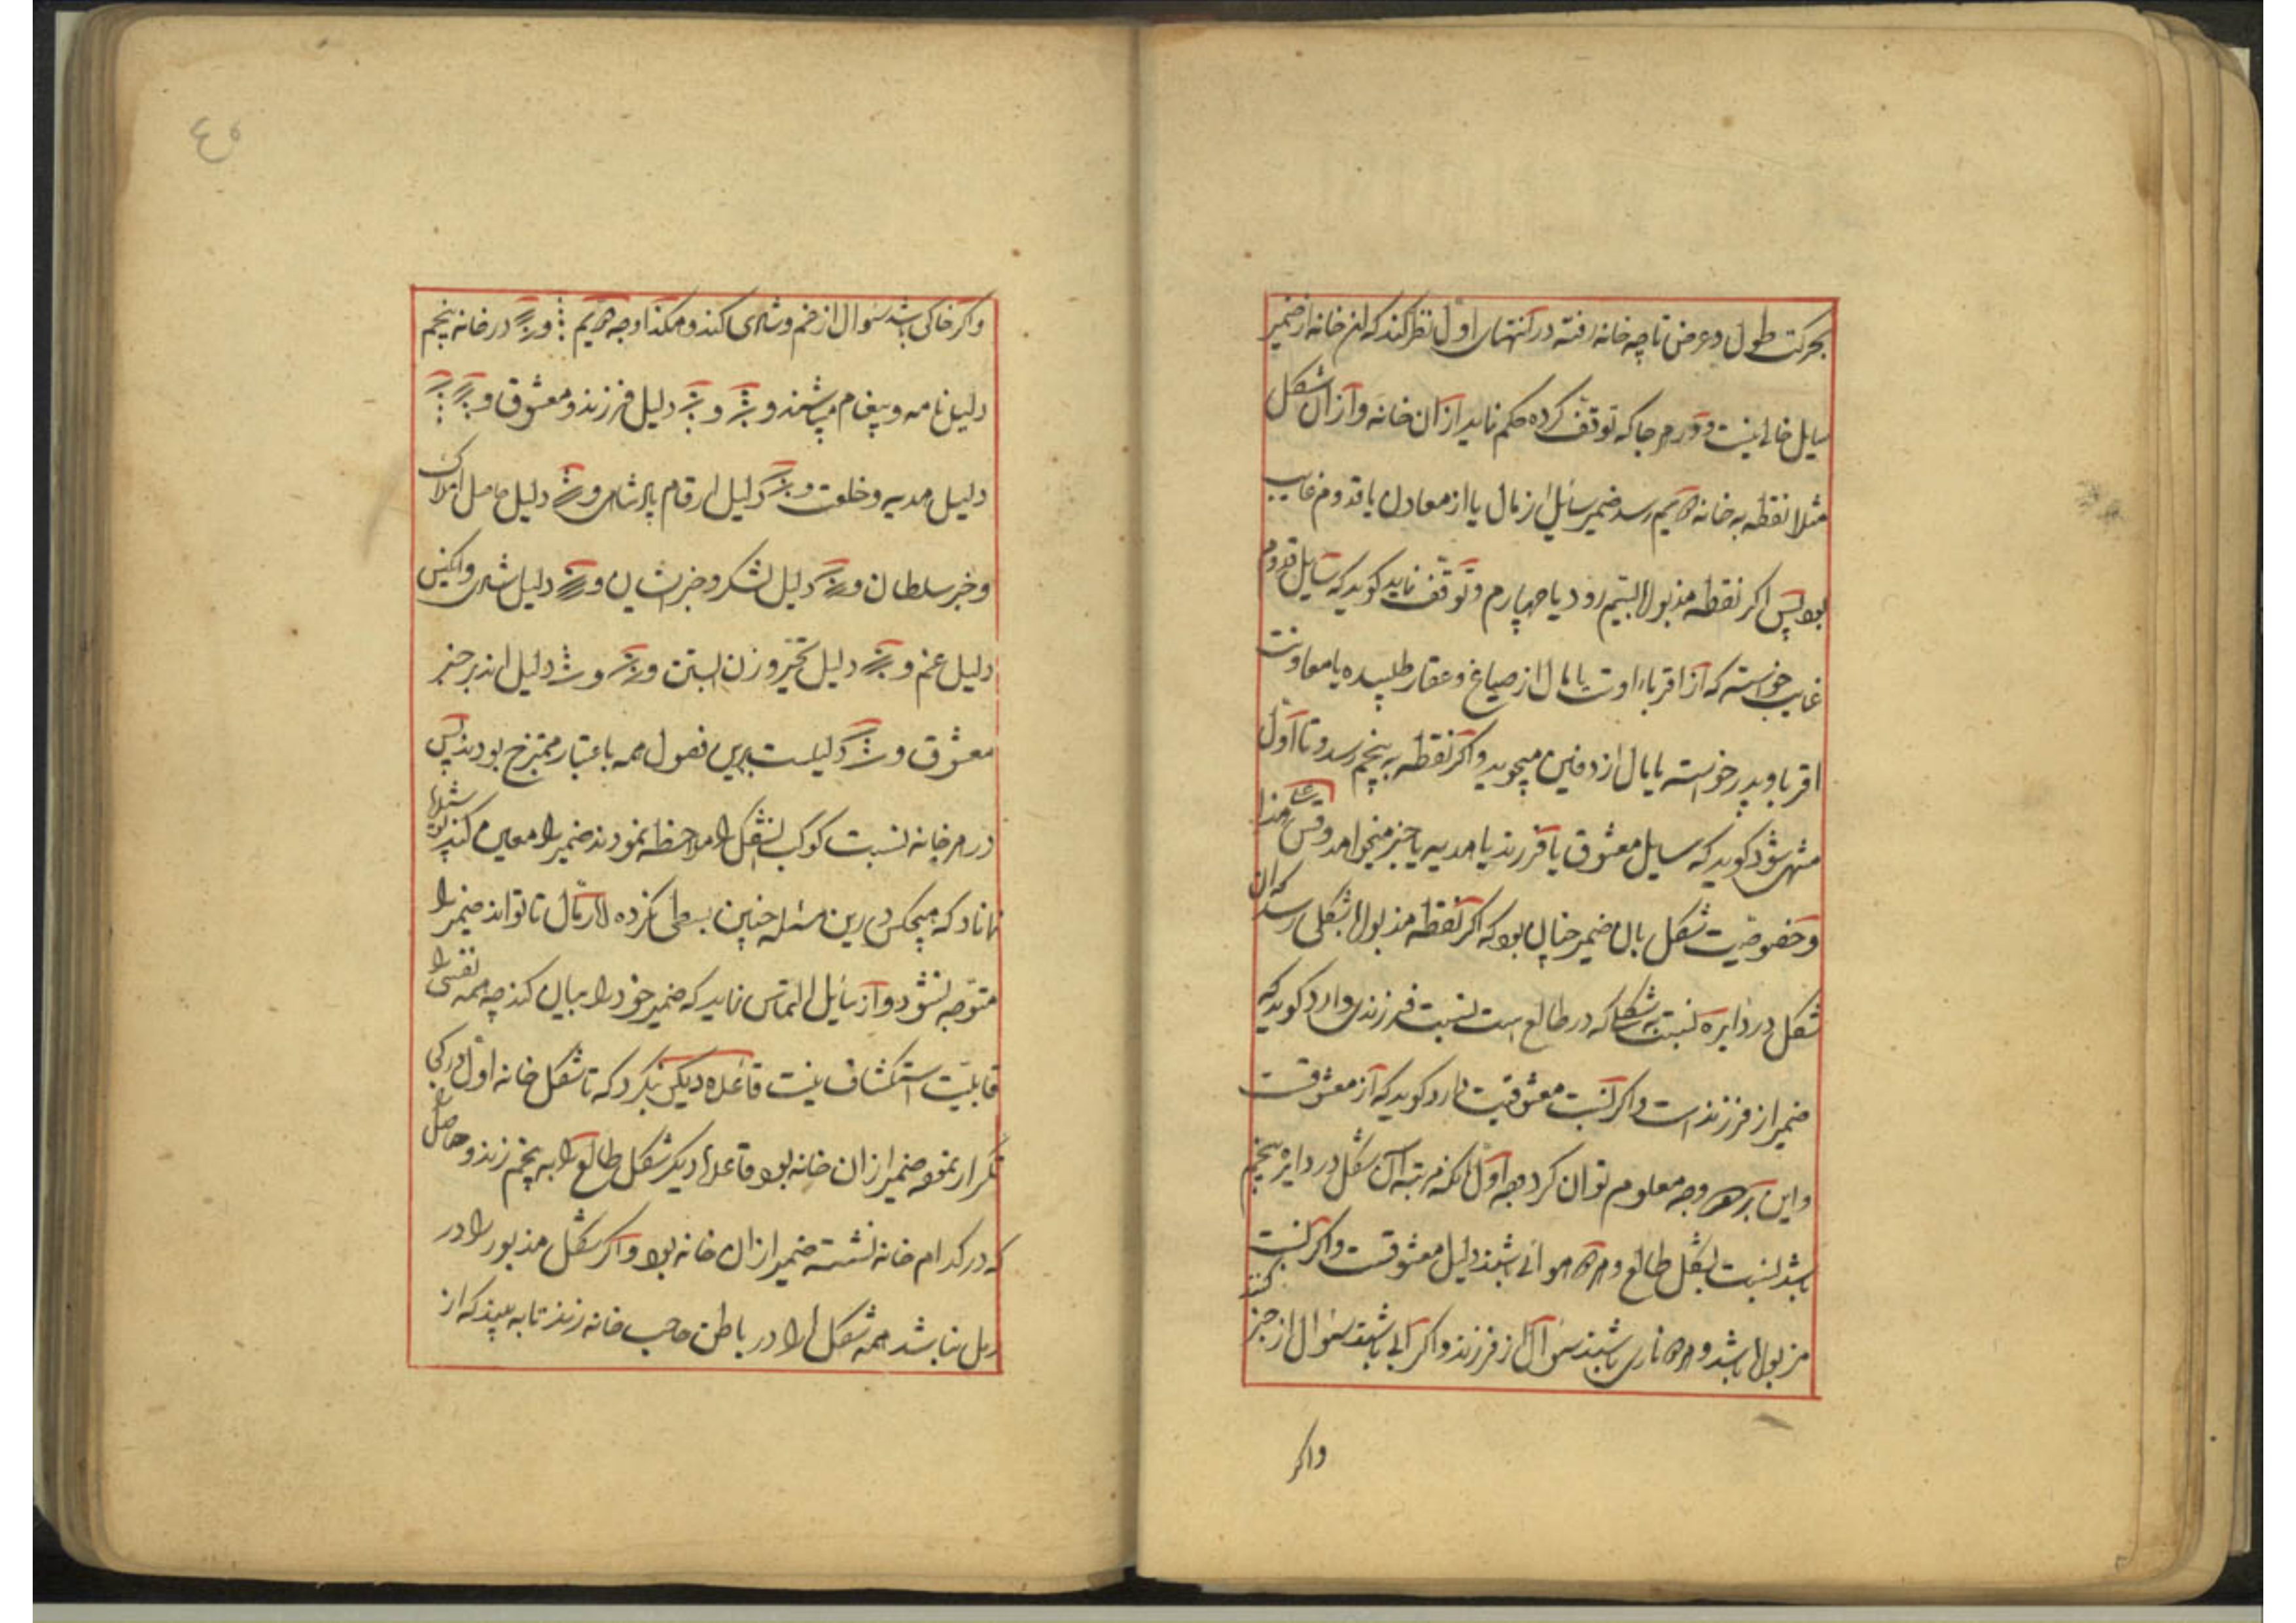 بحرکت طول و عرض تا چه خانه رفته در انتهای اول نظر کند که این خانه از ضمیر
سایل خالی نیست و در هر جا که توقف کرده حکم نماید از آن خانه و از آن شکل
مثلا نقطه به خانه دهم رسد ضمیر سائل از مال یا از معادن یا قدوم غایب
بود پس اکر نقطه مذبوله بستیم رود یا چهارم و توقف نماید کوید که سایل قدوم
غایب خواسته که از اقرباء اوست یا مال از ضیاع و عقار طلبیده یا معاونت
اقربا و پدر خواسته یا مال از دفین میجوید و اکر نقطه به پنجم رسد و تا اول
منتهی شود کوید که سایل معشوق یا فرزند یا هدیه یا خبر میخواهد و قس علی هذا
و خصوصیت شکل بان ضمیر چنان بود که اکر نقطه مذبوله بشکلی رسد که ان
شکل در دایره نسبت به شکل که در طالع است نسبت فرزندی دارد کوید که
ضمیر از فرزند است و اکر نسبت معشوقیت دارد کوید که از معشوقست
و این بر دو وجه معلوم توان کرد وجه اول انکه مرتبه آن شکل در دایره پنجم
باشد نسبت بشکل طالع و هر دو هوائی باشند دلیل معشوقست و اکر نسبت
مزبوله باشد و هر دو ناری باشند سوال از فرزند و اکر آبی باشند سوال از خبر کنند
واکر
٤٥
واکر خاکی باشد سوال از غم و شادی کند و هکذا وجه دویم و در خانه پنجم
دلیل نامه و پیغام میباشند و و دلیل فرزند و معشوق و
دلیل هدیه و خلعت و دلیل ارقام پادشاهی و دلیل حاصل املاک
و خبر سلطان و دلیل لشکر و خبر ایشان و دلیل شادی و
دلیل غم و دلیل و زن ابستن و و دلیل خبر
معشوق و دلیلست برین فصول همه باعتبار ممتزج بودند پس
در هر خانه نسبت کوکب بشکل را ملاحظه نمودند ضمیر را معین کنند
نماناد که هیچکس درین مسئله چنین بسطی نکرده لا رمال تا تواند ضمیر را
متوجه نشود و از سایل التماس نماید که ضمیر خود را بیان کند چه همه نفسی را
قابلیت استکشاف نیست قاعده دیکر بنکرد که تا شکل خانه اول در کجا
تکرار نموده ضمیر از ان خانه بود قاعده دیکر شکل طالع را به پنجم زند و حاصل
که در کدام خانه نشسته ضمیر از ان خانه بود و اکر شکل مذبور را در
رمل نباشد همه شکل را در باطن صاحب خانه زند تا به بیند که از